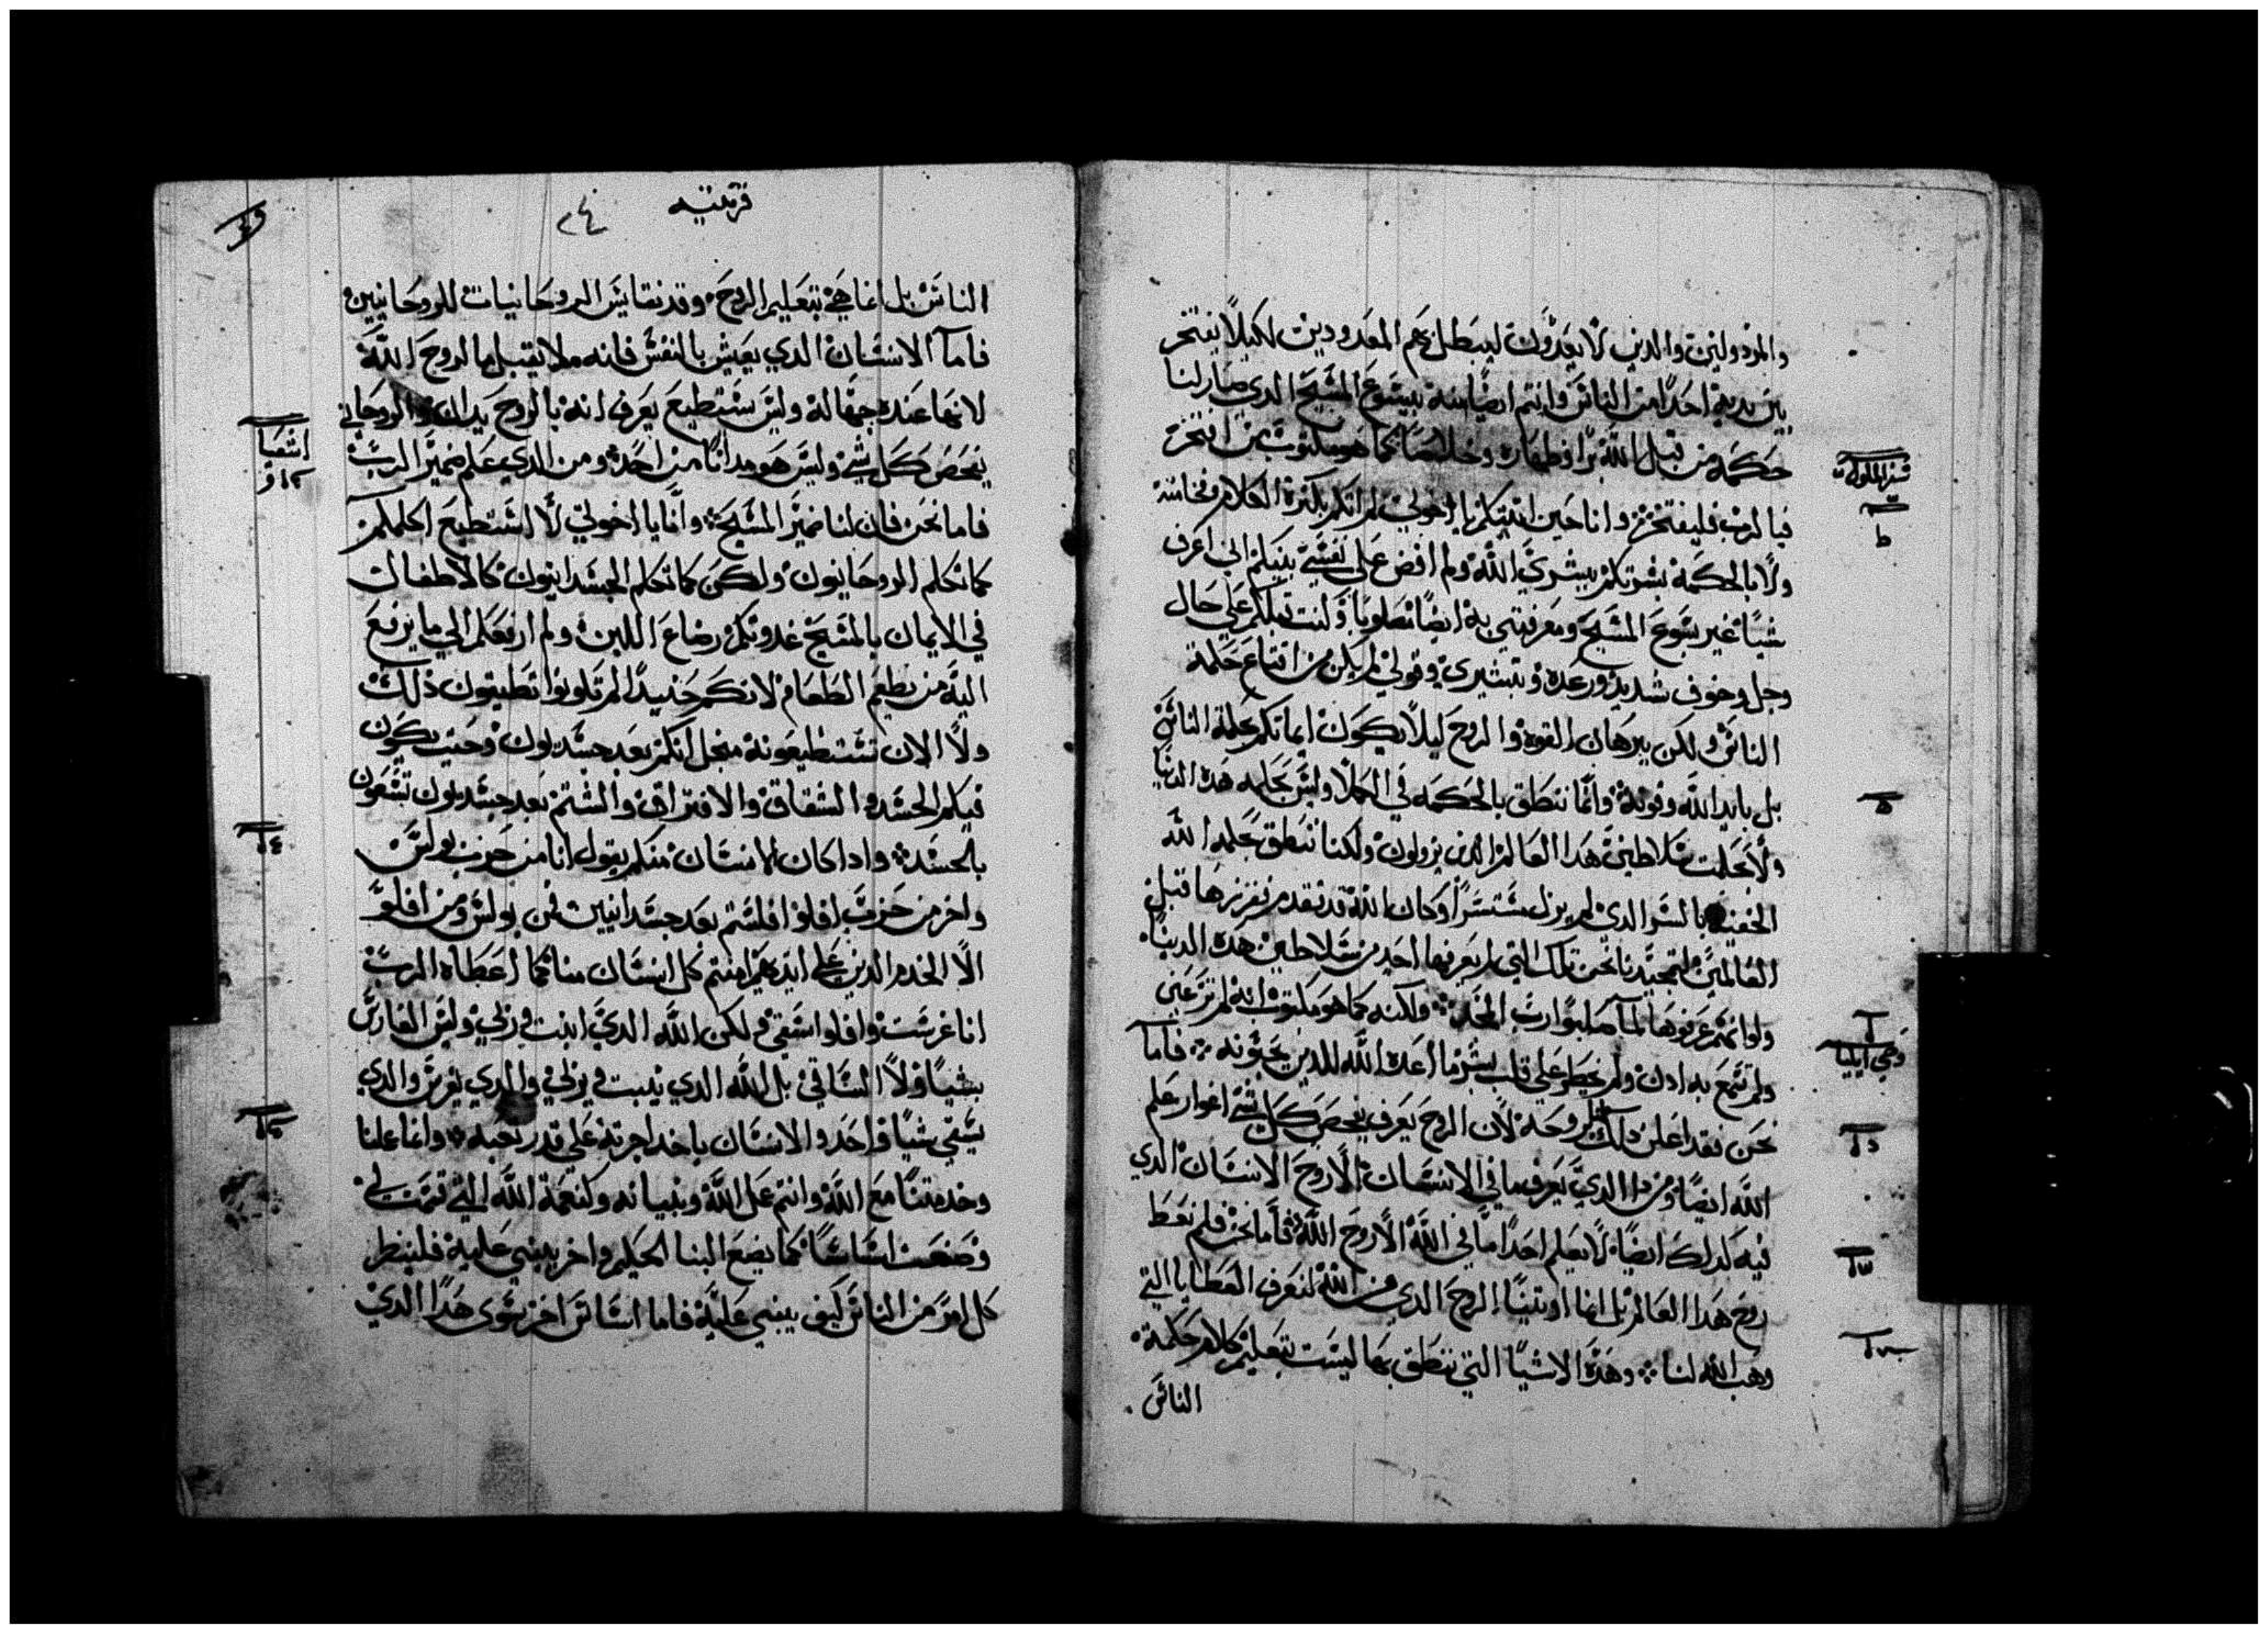 والمرذولين والدين لا يعدون ليبطل بهم المعدودين لكيلا يفتخر
بين يديه احدًا من الناس وانتم ايضًا منه بيسوع المسيح الدي صار لنا
حكمه من قبل الله برًا وطهاره وخلاصًا كما هو مكتوب من افتخر
فبالرب فليفتخر وانا حين اتيتكم يا اخوتي لم اتكم بكثرة الكلام وفخامته
ولا بالحكمة بشرتكم ببشري الله ولم اقض على نفسي بينكم اني اعرف
شيًا غير يسوع المسيح ومعرفتي به ايضًا مصلوبا وكنت قبلكم على حال
وجل وخوف شديد ورعده وتبشيري وقولي لم يكن من اقناع حكمة
الناس ولكن ببرهان القوه والروح ليلا يكون ايمانكم بحكمة الناس
بل بايد الله وقوته وانما ننطق بالحكمه في الكملا وليس بحكمه هده الدنيا
ولا بحكمت سلاطين هدا العالم الدين يزولون ولكنا ننطق بحكمه الله
الخفيه بالسر الدي لم يزل مستترًا وكان الله قد تقدم ففرزها قبل
العالمين لتمجيدنا نحن تلك التي لم يعرفها احد من سلاطين هده الدنيا
ولو انهم عرفوها لما صلبوا رب المجد ولكنه كما هو مكتوب انه لم تر عين
ولم تسمع به ادن ولم يخطر على قلب بشر ما اعده الله للدين يحبونه فاما
نحن فقد اعلن دلك لنا بروحه لان الروح يعرف يفحص كل شي اغوار علم
الله ايضًا ومن دا الدي يعرف ما في الانسان الا روح الانسان الدي
فيه كدلك ايضًا لا يعلم احدًا ما في الله الا روح الله فاما نحن فلم نعط
روح هدا العالم بل انما اوتينا الروح الدي من الله لنعرف العطايا التي
وهب الله لنا وهده الاشيا التي ننطق بها ليست بتعليم كلام حكمة
الناس
سفر الملوك
ط
ه
وحي ايليا
قرنتيه
٢٤
الناس بل انما هي بتعليم الروح وقد نقايس الروحانيات للروحانيين
فاما الانسان الدي يعيش بالنفس فانه ملا يقبل ما لروح الله
لانها عنده جهاله وليس يستطيع يعرف انه بالروح يدان والروحاني
يفحص كل شي وليس هو مدانًا من احد ومن الدي علم ضمير الرب
فاما نحن فان لنا ضمير المسيح وانا يا اخوتي لا استطيع اكلمكم
كما تكلم الروحانيون ولكن كما تكلم الجسدانيون كالاطفال
في الايمان بالمسيح غدوتكم رضاع اللبن ولم ارفعكم الي ما يرفع
اليه من يطعم الطعام لانكم حنيدًا لم تكونوا تطيقون ذلك
ولا الان تستطيعونه منجل انكم بعد جسديون وحيت يكون
فيكم الحسد والشقاق والافتراق والستم بعد جسديون تسعون
بالجسد وادا كان الانسان منكم يقول انا من حزب بولس
واخر من حزب افلوا افلستم بعد جسدانيين فمن بولس ومن افلو
الا الخدم الدين على ايديهم امنتم كل انسان منا كما اعطاه الرب
انا غرست وافلوا اسقي ولكن الله الدي انبت وربي وليس الغارس
بشيًا ولا الساقي بل الله الدي ينبت ويربي والدي يغرس والدي
يسقي شيًا واحد والانسان ياخد اجرته على قدر تعبه وانما عملنا
وخدمتنا مع الله وانتم عمل الله وبنيانه وكنعمة الله التي قسمت لي
وضعت اساسًا كما يضع البنا الحكيم واخر يبني عليه فلينظر
كل امر من الناس كيف يبني عليه فاما اساس اخر سوى هدا الدي
اشعيا